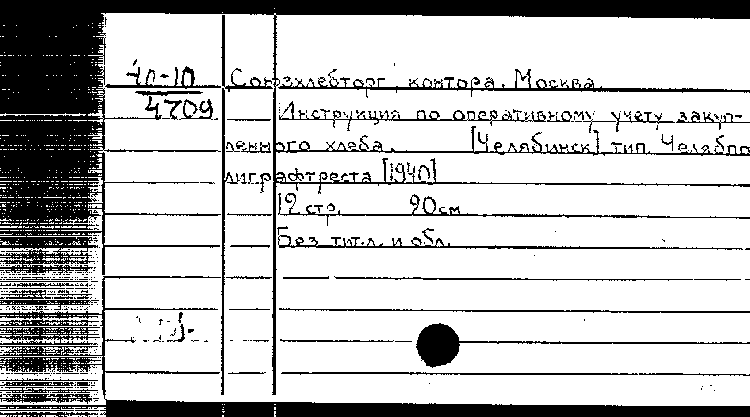 40-10 Союзхлебторг, контора. Москва.
4709 Инструкция по оперативному учету закуп-
ленного хлеба. [Челябинск] тип. Челябпо
лиграфтреста [1940]
12 стр. 20см
Без тит.л. и обл.